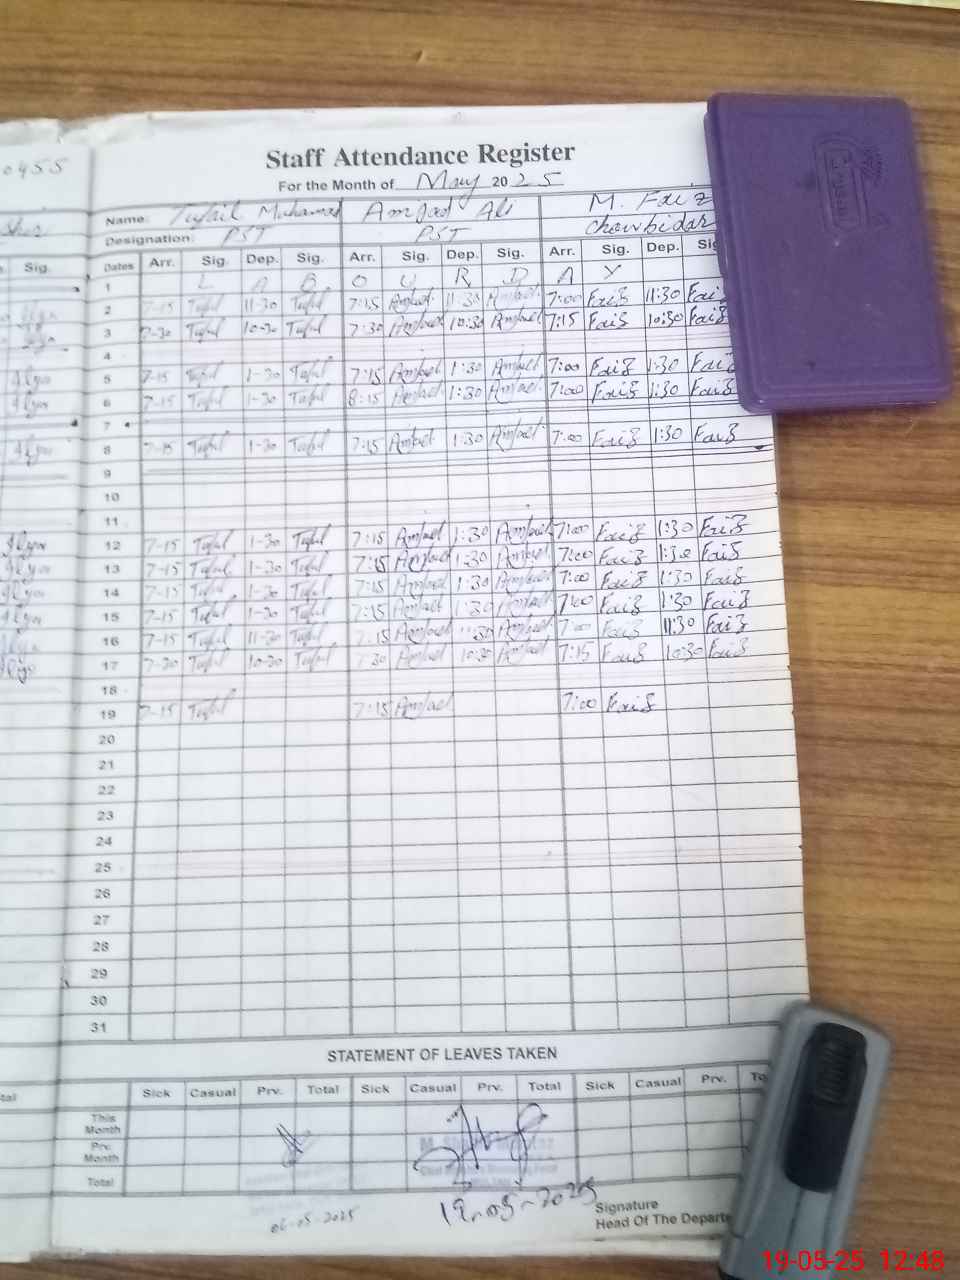 0455
Staff Attendance Register
For the Month of May 2025
Name: Tufail Muhammad Amjad Ali M. Faiz
Designation: PST PST Chowkidar
Sig. Dates Arr. Sig. Dep. Sig. Arr. Sig. Dep. Sig. Arr. Sig. Dep.
1 L A B O U R D A Y
2 7-15 Tufail 11-30 Tufail 7:15 Amjad 11:30 Amjad 7:00 Faiz 11:30 Faiz
3 7-30 Tufail 10-30 Tufail 7:30 Amjad 10:30 Amjad 7:15 Faiz 10:30 Faiz
4
Ilyas 5 7-15 Tufail 1-30 Tufail 7:15 Amjad 1:30 Amjad 7:00 Faiz 1:30 Faiz
Ilyas 6 7-15 Tufail 1-30 Tufail 8:15 Amjad 1:30 Amjad 7:00 Faiz 1:30 Faiz
7
Ilyas 8 7-15 Tufail 1-30 Tufail 7:15 Amjad 1:30 Amjad 7:00 Faiz 1:30 Faiz
9
10
11
Ilyas 12 7-15 Tufail 1-30 Tufail 7:15 Amjad 1:30 Amjad 7:00 Faiz 1:30 Faiz
Ilyas 13 7-15 Tufail 1-30 Tufail 7:15 Amjad 1:30 Amjad 7:00 Faiz 1:30 Faiz
Ilyas 14 7-15 Tufail 1-30 Tufail 7:15 Amjad 1:30 Amjad 7:00 Faiz 1:30 Faiz
Ilyas 15 7-15 Tufail 1-30 Tufail 7:15 Amjad 1:30 Amjad 7:00 Faiz 1:30 Faiz
Ilyas 16 7-15 Tufail 11-30 Tufail 7:15 Amjad 11:30 Amjad 7:00 Faiz 11:30 Faiz
Ilyas 17 7-30 Tufail 10-30 Tufail 7:30 Amjad 10:30 Amjad 7:15 Faiz 10:30 Faiz
18
19 7-15 Tufail 7:15 Amjad 7:00 Faiz
20
21
22
23
24
25
26
27
28
29
30
31
STATEMENT OF LEAVES TAKEN
Sick Casual Prv. Total Sick Casual Prv. Total Sick Casual Prv.
This Month
Prv. Month
Total
06-05-2025
19-05-2025
Signature
Head Of The
19-05-25 12:48